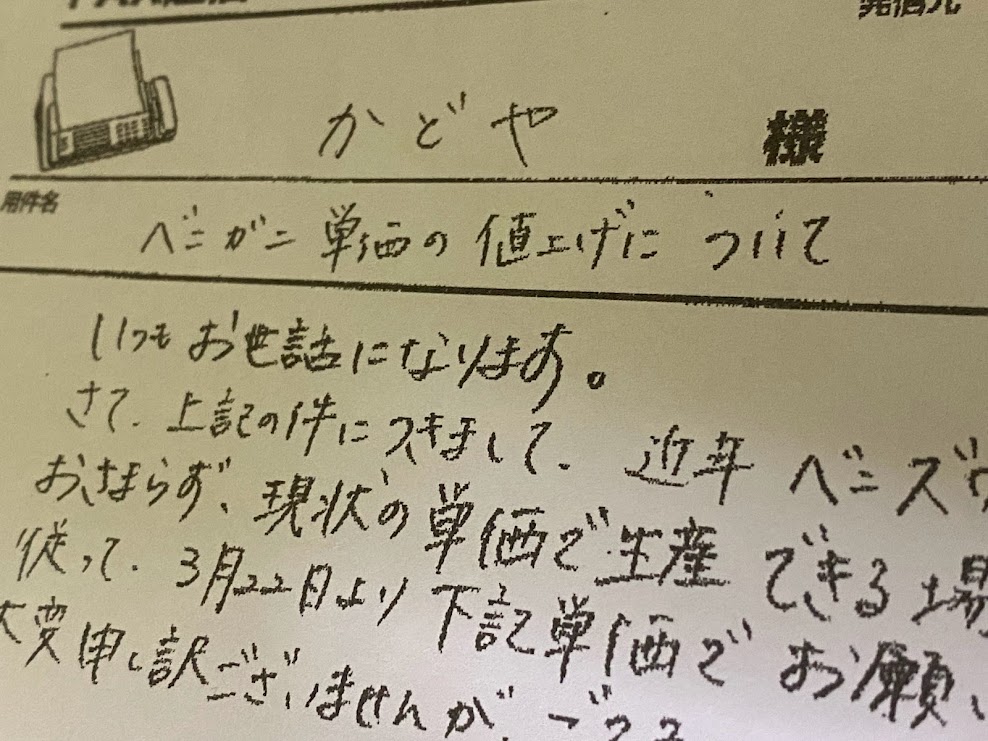 発信元
かどや 様
用件名
ベニガニ単価の値上げについて
いつもお世話になります。
さて、上記の件につきまして、近年ベニズワ
おさまらず、現状の単価で生産できる場
従って、3月22日より下記単価でお願い
大変申し訳ございませんが、ご